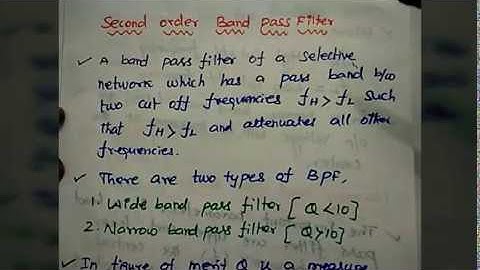 Second order Band pass Filter
✓ A band pass filter of a selective
network which has a pass band b/w
two cut off frequencies fH > fL such
that fH > fL and attenuates all other
frequencies.
✓ There are two types of BPF,
1. Wide band pass filter [Q<10]
2. Narrow band pass filter [Q>10]
✓ In figure of merit Q is a measure